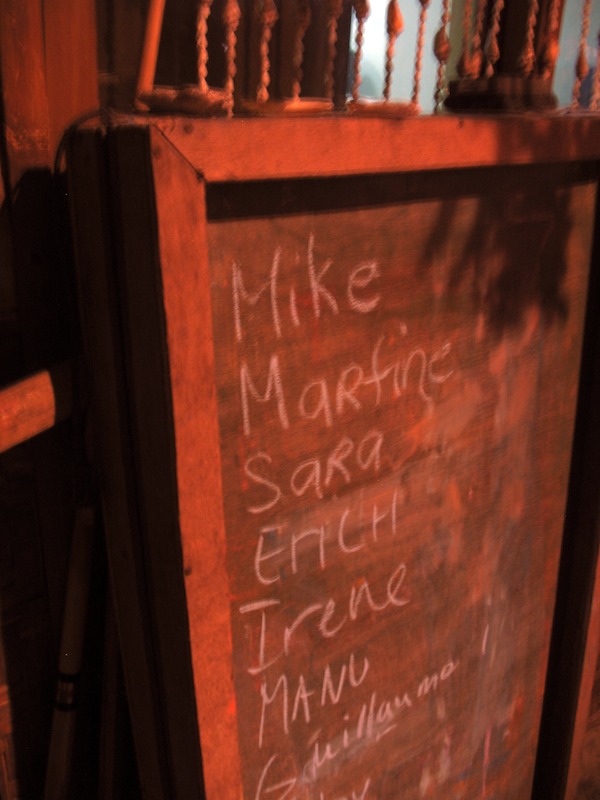 Mike
Martine
Sara
ERICH
Irene
MANU
Guillaume